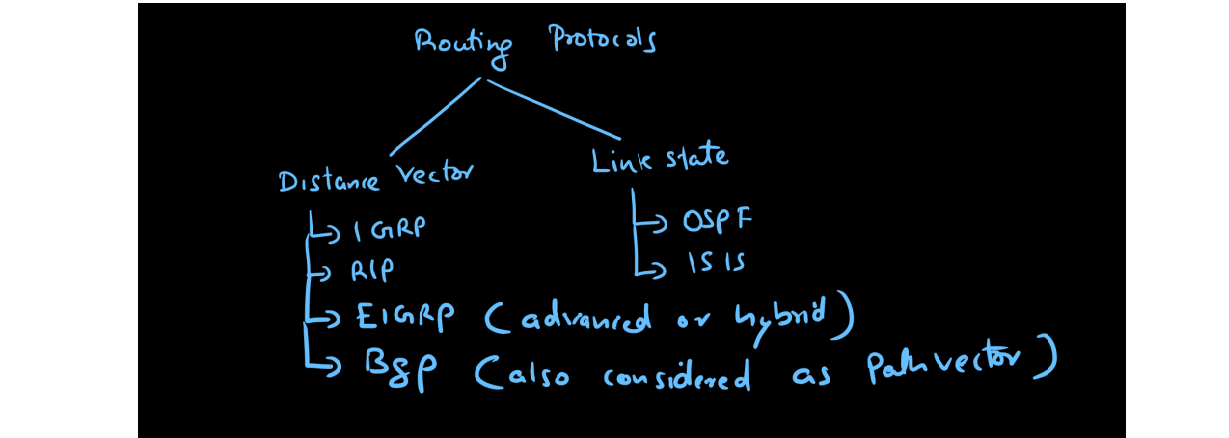 Routing Protocols
Distance Vector
Link state
IGRP
RIP
EIGRP (advanced or hybrid)
BGP (also considered as Path vector)
OSPF
ISIS